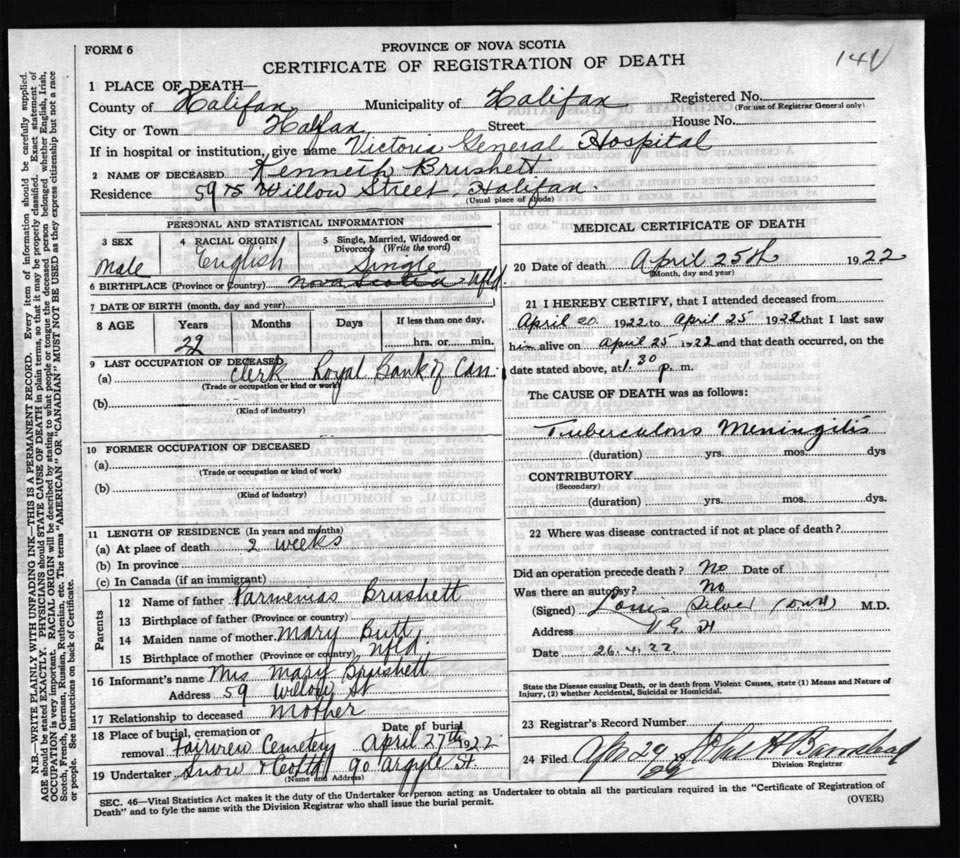 FORM 6
PROVINCE OF NOVA SCOTIA
CERTIFICATE OF REGISTRATION OF DEATH
1 PLACE OF DEATH—
County of Halifax Municipality of Halifax Registered No.
(For use of Registrar General only)
City or Town Halifax Street House No.
If in hospital or institution, give name Victoria General Hospital
2 NAME OF DECEASED Kenneth Brushett
Residence 59 Willow Street Halifax.
(Usual place of abode)
PERSONAL AND STATISTICAL INFORMATION
3 SEX 4 RACIAL ORIGIN 5 Single, Married, Widowed or Divorced (Write the word)
Male English Single
6 BIRTHPLACE (Province or Country) Nova Scotia Nfld.
7 DATE OF BIRTH (month, day and year)
8 AGE Years Months Days If less than one day,
22 hrs. or min.
9 LAST OCCUPATION OF DECEASED
(a) Clerk Royal Bank of Can.
(Trade or occupation or kind of work)
(b)
(Kind of industry)
10 FORMER OCCUPATION OF DECEASED
(a)
(Trade or occupation or kind of work)
(b)
(Kind of industry)
11 LENGTH OF RESIDENCE (In years and months)
(a) At place of death 2 weeks
(b) In province
(c) In Canada (if an immigrant)
Parents
12 Name of father Parmenias Brushett
13 Birthplace of father (Province or country)
14 Maiden name of mother Mary Butt
15 Birthplace of mother (Province or country) Nfld.
16 Informant's name Mrs Mary Brushett
Address 59 Willow St
17 Relationship to deceased Mother
18 Place of burial, cremation or removal Fairview Cemetery Date of burial April 27th 1922
19 Undertaker Snow & Co Ltd 90 Argyle St.
(Name and Address)
MEDICAL CERTIFICATE OF DEATH
20 Date of death April 25th 1922
(Month, day and year)
21 I HEREBY CERTIFY, that I attended deceased from
April 20 1922 to April 25 1922 that I last saw
him alive on April 25 1922 and that death occurred, on the
date stated above, at 1.30 p. m.
The CAUSE OF DEATH was as follows:
Tuberculous Meningitis
(duration) yrs. mos. dys
CONTRIBUTORY
(Secondary)
(duration) yrs. mos. dys.
22 Where was disease contracted if not at place of death?
Did an operation precede death? No Date of
Was there an autopsy? No
(Signed) Louis Silver M.D.
Address V. G. H
Date 26.4.22
State the Disease causing Death, or in death from Violent Causes, state (1) Means and Nature of
Injury, (2) whether Accidental, Suicidal or Homicidal.
23 Registrar's Record Number
24 Filed Apr 29 1922 John H Barnstead
Division Registrar
SEC. 46—Vital Statistics Act makes it the duty of the Undertaker or person acting as Undertaker to obtain all the particulars required in the "Certificate of Registration of
Death" and to fyle the same with the Division Registrar who shall issue the burial permit.
(OVER)
N.B.—WRITE PLAINLY WITH UNFADING INK—THIS IS A PERMANENT RECORD. Every item of information should be carefully supplied.
AGE should be stated EXACTLY. PHYSICIANS should STATE CAUSE OF DEATH in plain terms, so that it may be properly classified. Exact statement of
OCCUPATION is very important. RACIAL ORIGIN will be described by stating to what people or tongue the deceased person belonged whether English, Irish,
Scotch, French, German, Russian, Ruthenian, etc. The terms "AMERICAN" OR "CANADIAN" MUST NOT BE USED as they express citizenship but not a race
or people. See instructions on back of Certificate.